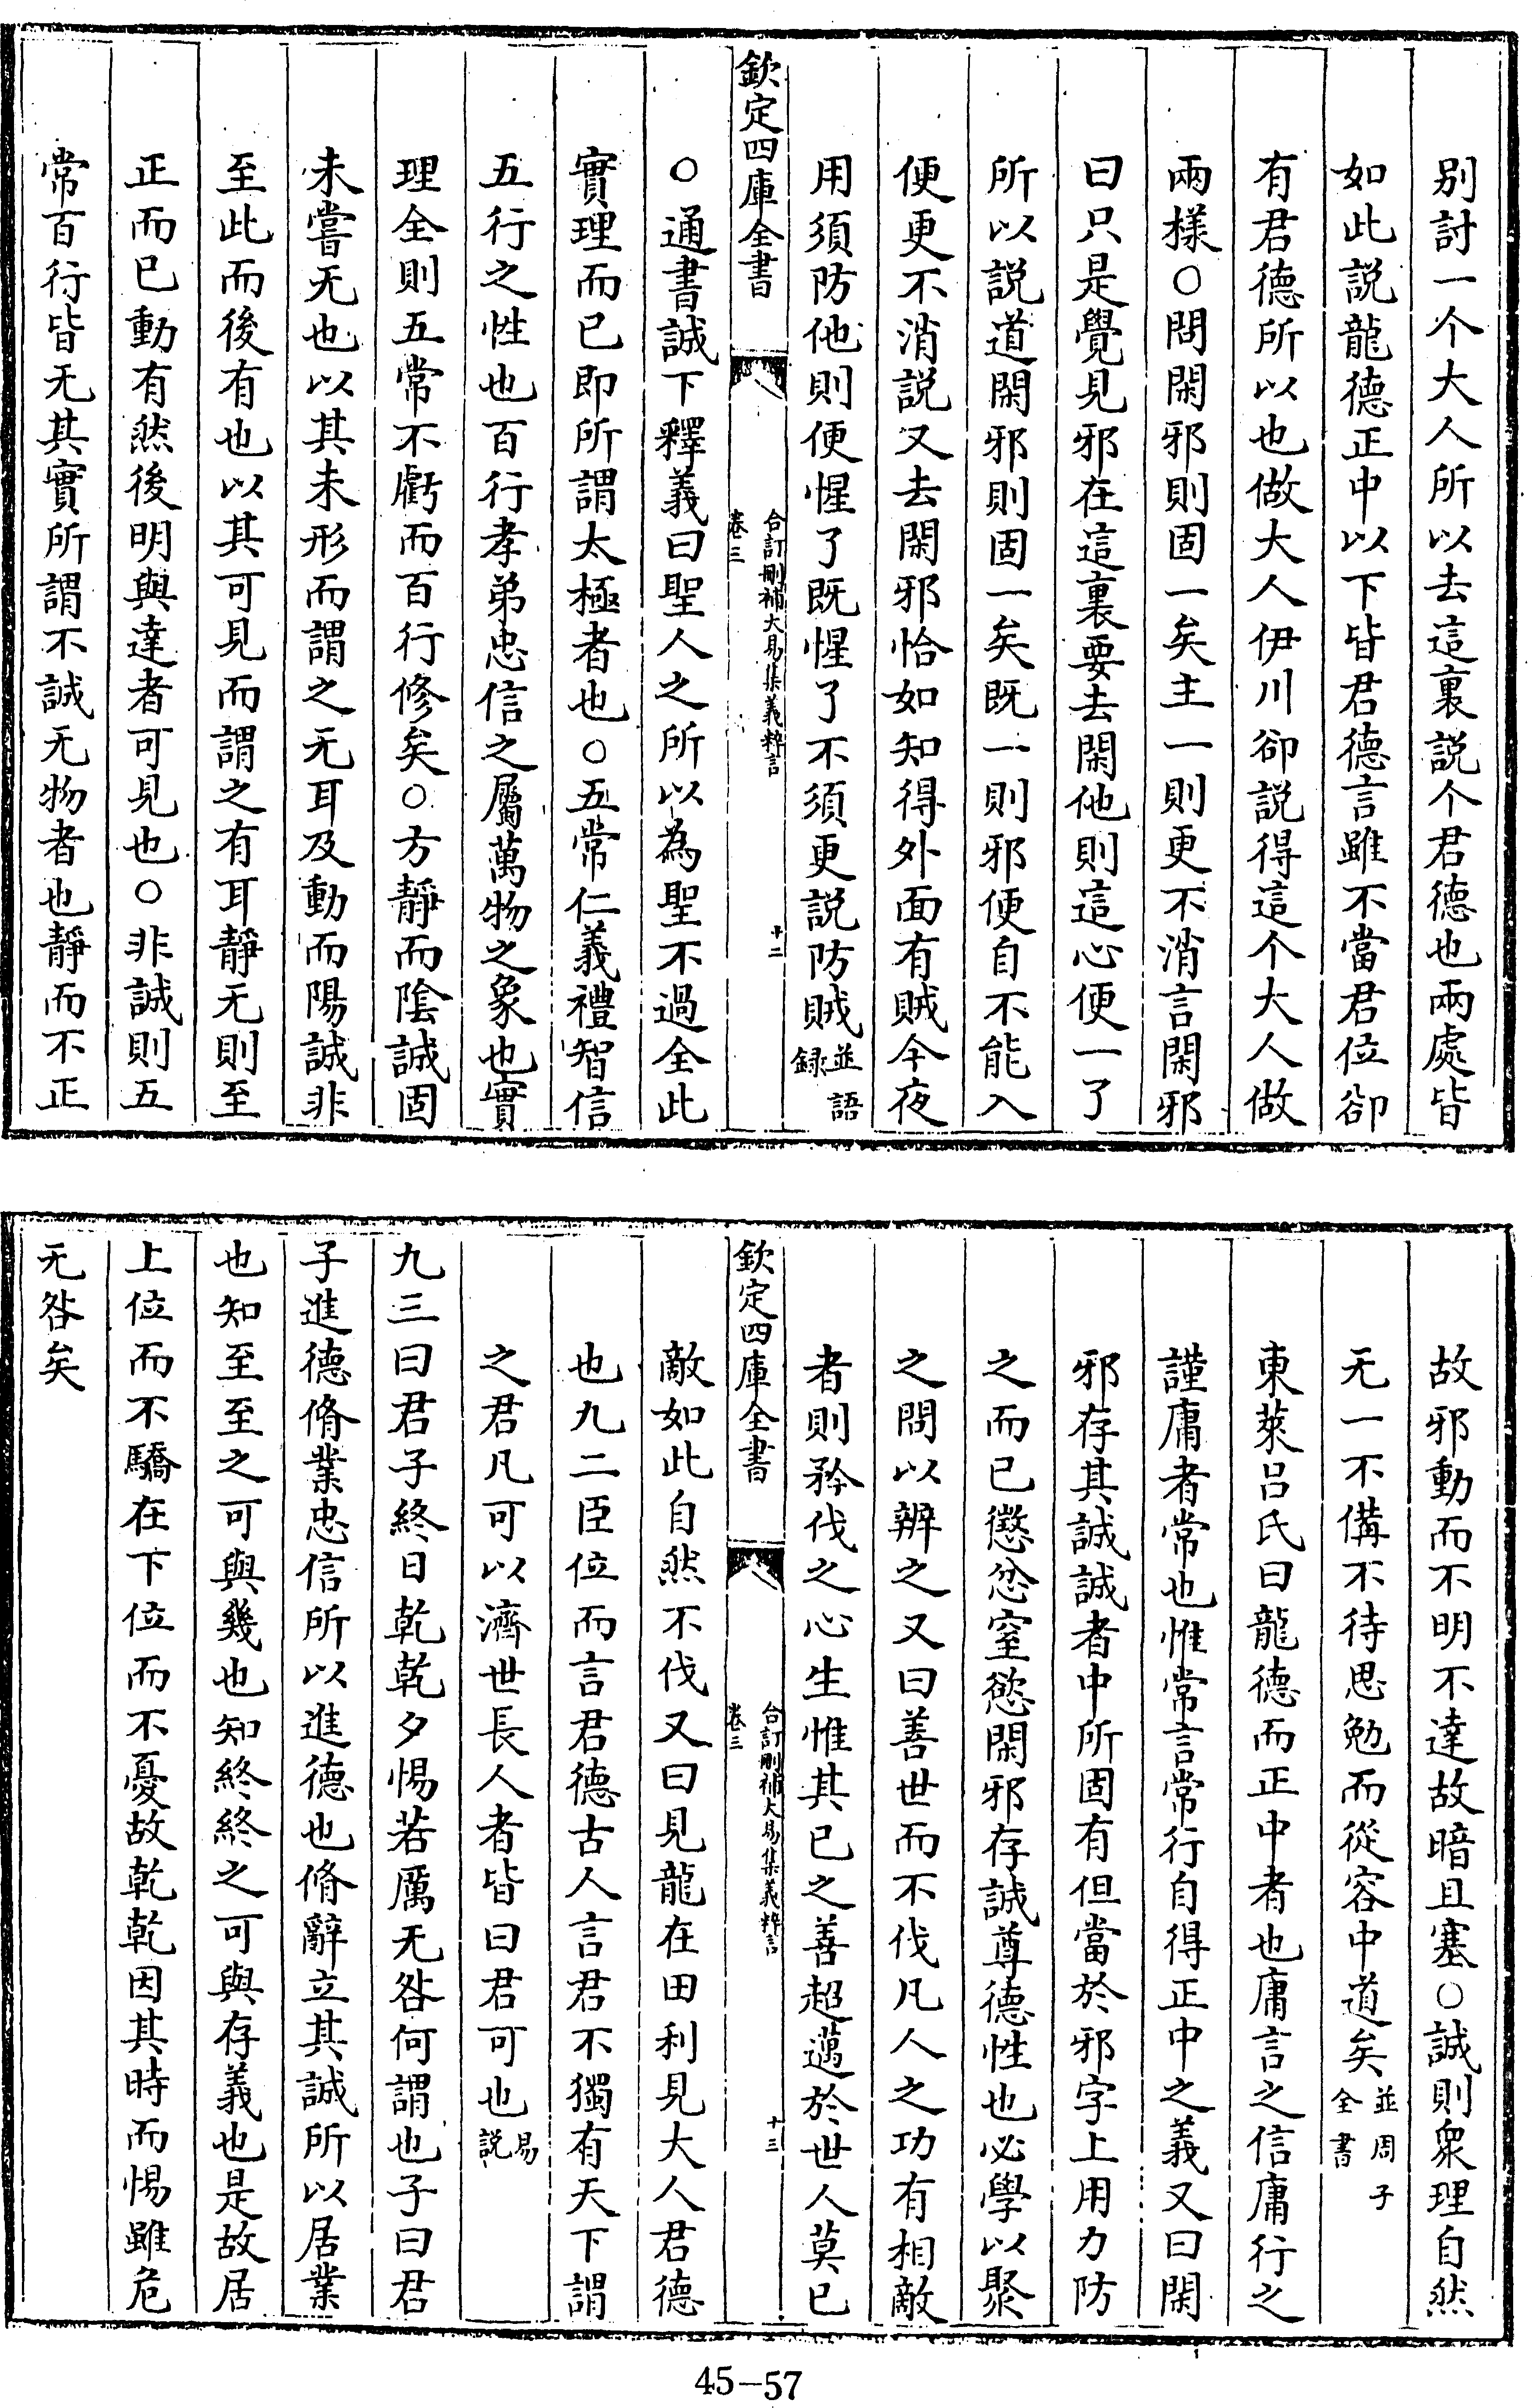 別討一个大人所以去這裏説个君德也兩處皆
如此説龍德正中以下皆君德言雖不當君位卻
有君德所以也做大人伊川卻説得這个大人做
兩樣〇問閑邪則固一矣主一則更不消言閑邪
曰只是覺見邪在這裏要去閑他則這心便一了
所以説道閑邪則固一矣既一則邪便自不能入
便更不消説又去閑邪恰如知得外面有賊今夜
用須防他則便惺了既惺了不須更説防賊並語錄
欽定四庫全書
合訂刪補大易集義粹言
卷三
十二
〇通書誠下釋義曰聖人之所以為聖不過全此
實理而已即所謂太極者也〇五常仁義禮智信
五行之性也百行孝弟忠信之屬萬物之象也實
理全則五常不虧而百行修矣〇方靜而陰誠固
未嘗无也以其未形而謂之无耳及動而陽誠非
至此而後有也以其可見而謂之有耳靜无則至
正而已動有然後明與達者可見也〇非誠則五
常百行皆无其實所謂不誠无物者也靜而不正
故邪動而不明不達故暗且塞〇誠則衆理自然
无一不備不待思勉而從容中道矣並周子全書
東萊呂氏曰龍德而正中者也庸言之信庸行之
謹庸者常也惟常言常行自得正中之義又曰閑
邪存其誠誠者中所固有但當於邪字上用力防
之而已懲忿窒慾閑邪存誠尊德性也必學以聚
之問以辨之又曰善世而不伐凡人之功有相敵
者則矜伐之心生惟其已之善超邁於世人莫已
欽定四庫全書
合訂刪補大易集義粹言
卷三
十三
敵如此自然不伐又曰見龍在田利見大人君德
也九二臣位而言君德古人言君不獨有天下謂
之君凡可以濟世長人者皆曰君可也易説
九三曰君子終日乾乾夕惕若厲无咎何謂也子曰君
子進德脩業忠信所以進德也脩辭立其誠所以居業
也知至至之可與幾也知終終之可與存義也是故居
上位而不驕在下位而不憂故乾乾因其時而惕雖危
无咎矣
45-57